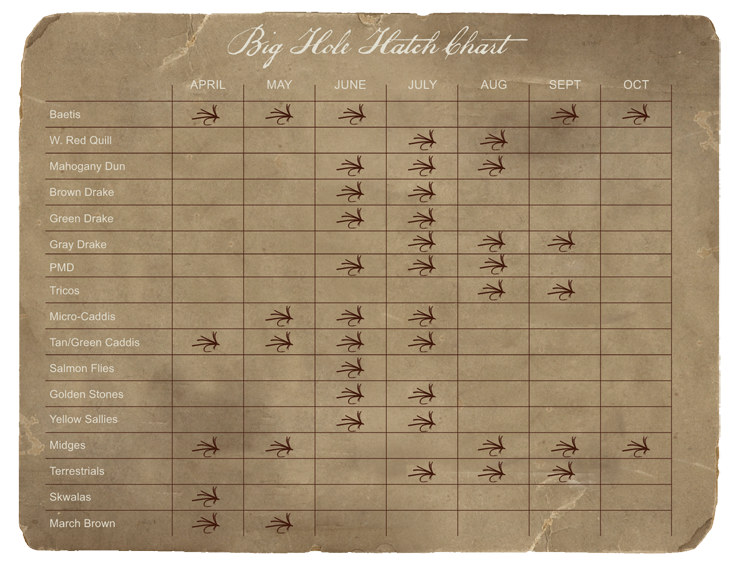 Big Hole Hatch Chart
APRIL MAY JUNE JULY AUG SEPT OCT
Baetis
W. Red Quill
Mahogany Dun
Brown Drake
Green Drake
Gray Drake
PMD
Tricos
Micro-Caddis
Tan/Green Caddis
Salmon Flies
Golden Stones
Yellow Sallies
Midges
Terrestrials
Skwalas
March Brown